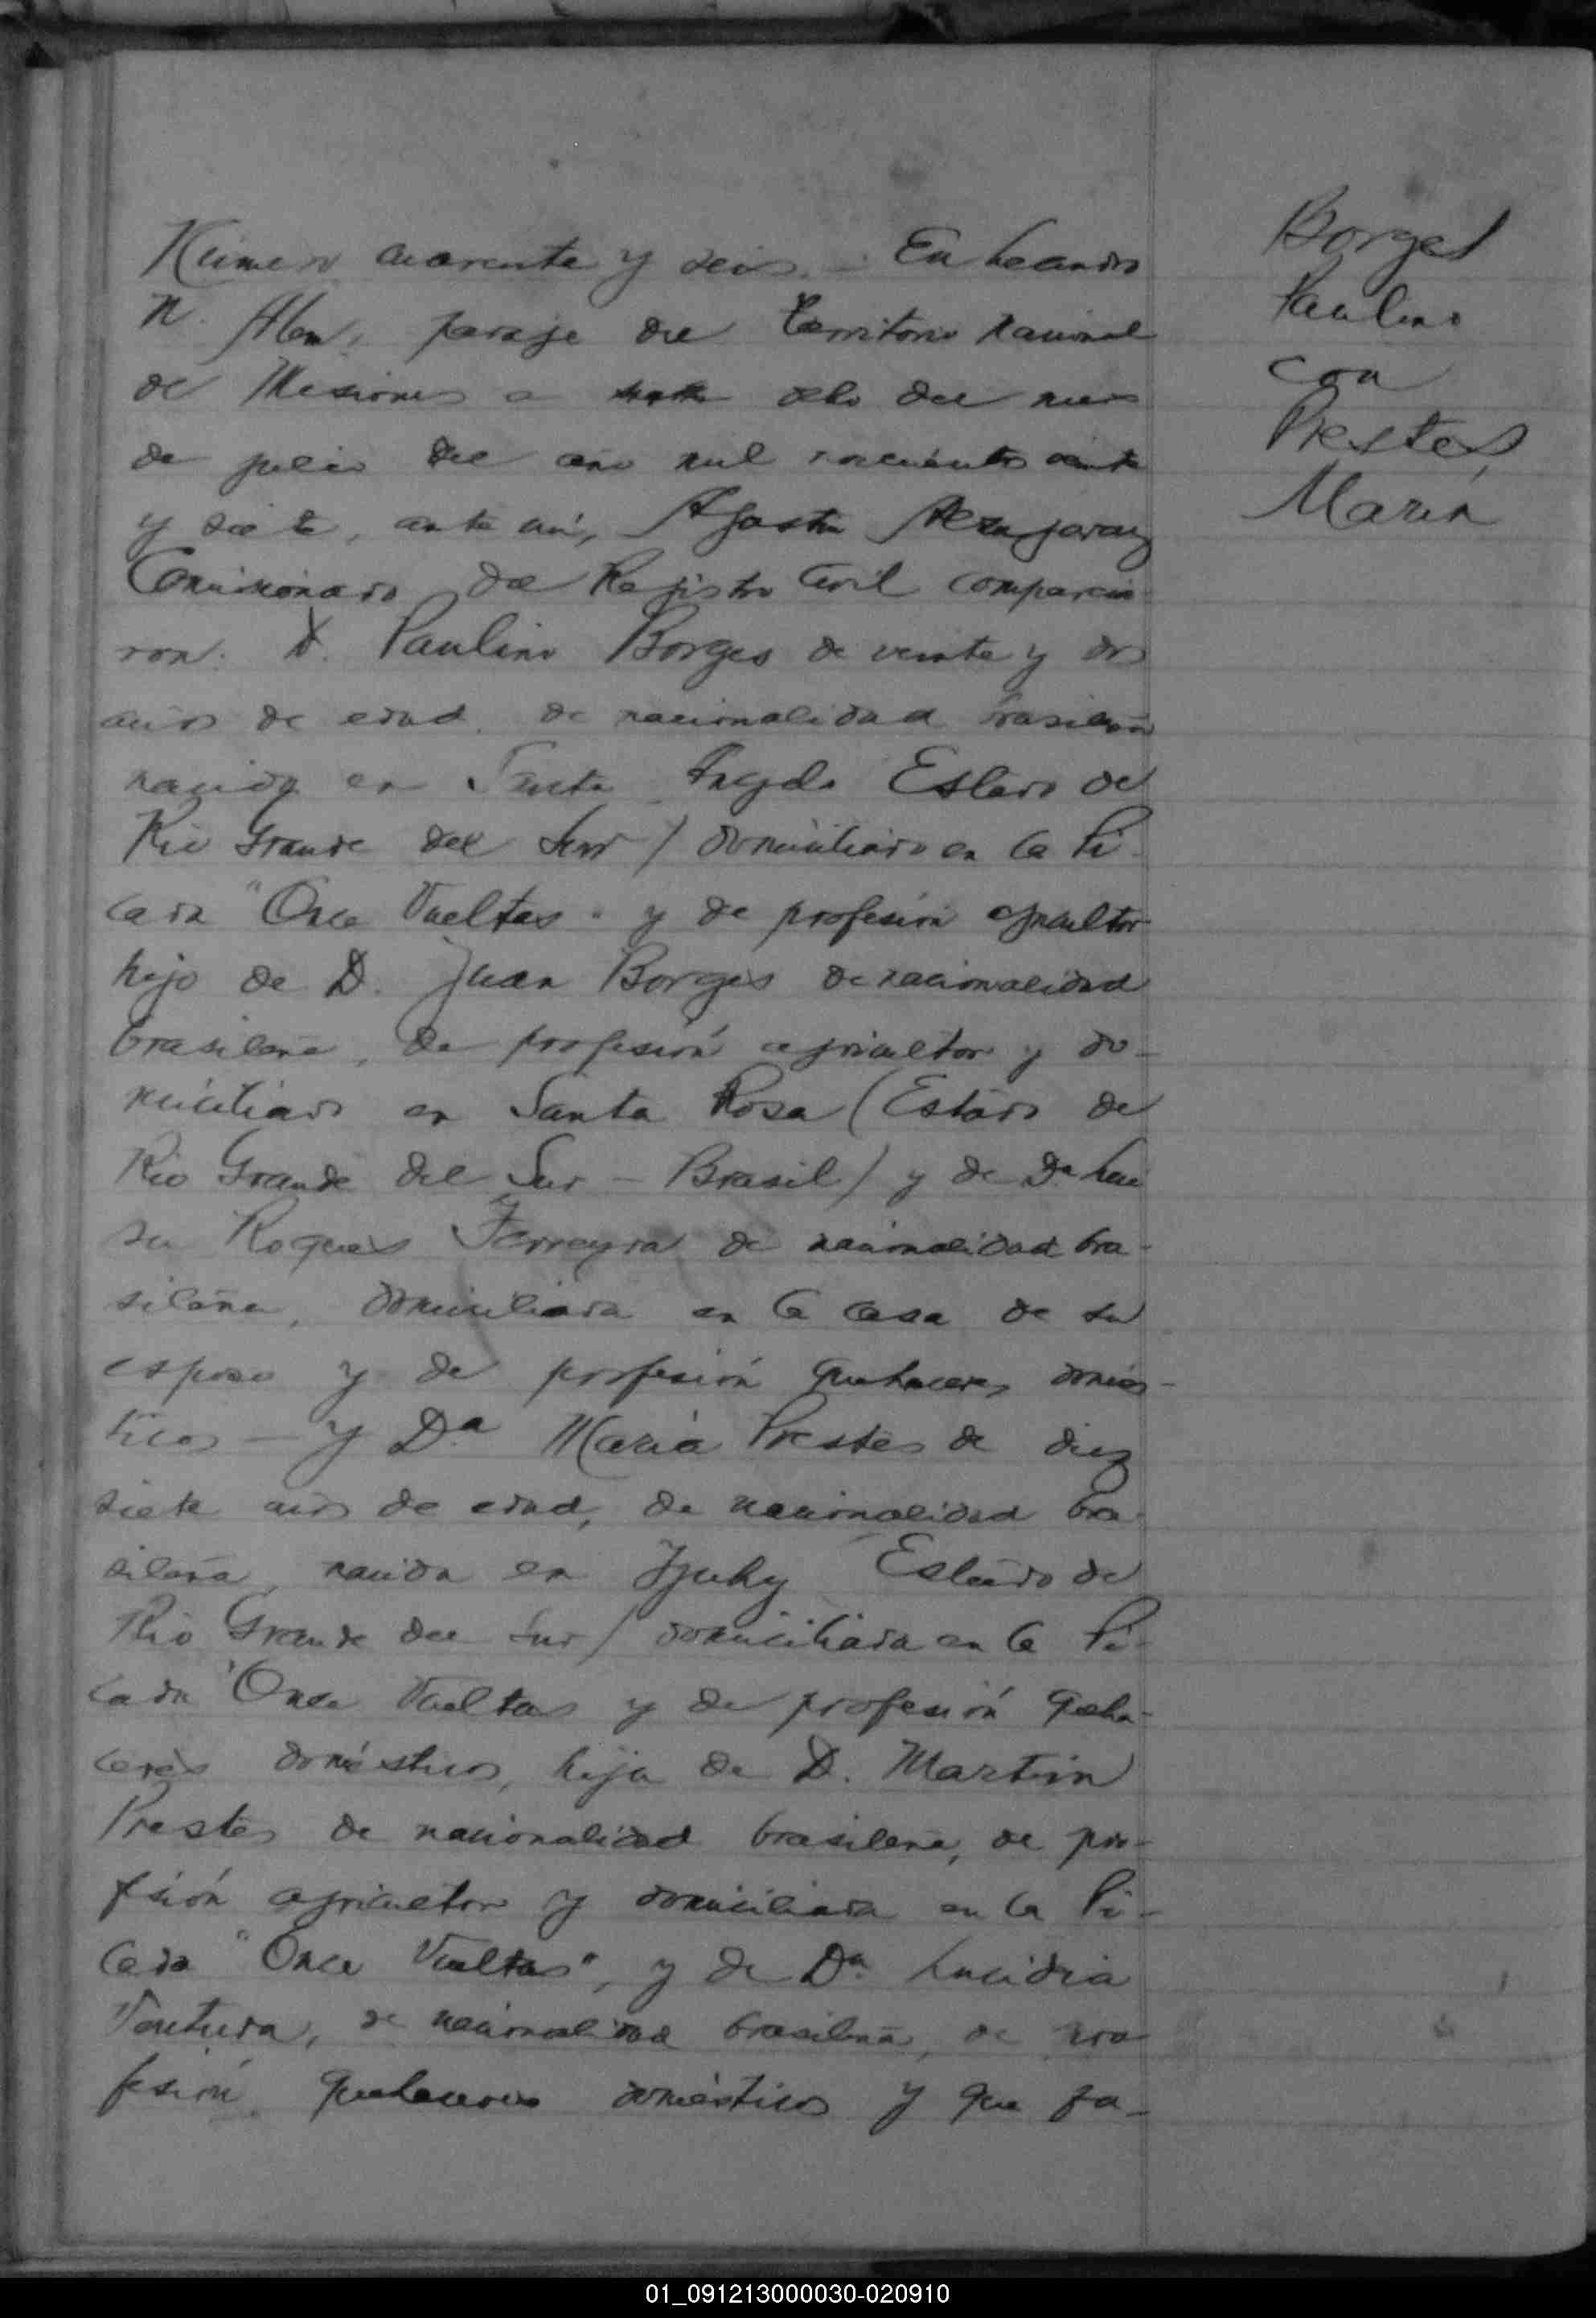 Número cuarenta y seis. - En Leandro
N. Alem, paraje del Territorio Nacional
de Misiones a ocho del mes
de julio del año mil novecientos veinte
y siete, ante mí, Agustín
Comisionado del Registro Civil comparecie-
ron: D. Paulino Borges de veinte y dos
años de edad, de nacionalidad brasileña
nacido en Santo Angelo Estado de
Rio Grande del Sur) domiciliado en la Pi-
cada "Once Vueltas" y de profesión agricultor
hijo de D. Juan Borges de nacionalidad
brasileña, de profesión agricultor y do-
miciliado en Santa Rosa (Estado de
Rio Grande del Sur - Brasil) y de Da. Lui
sa Roques Ferreyra de nacionalidad bra-
sileña, domiciliada en la casa de su
esposo y de profesión quehaceres domés-
ticos - y Da. María Prestes de diez
siete años de edad, de nacionalidad bra-
sileña, nacida en Ijuhy Estado de
Rio Grande del Sur) domiciliada en la Pi-
cada "Once Vueltas y de profesión queha-
ceres domésticos, hija de D. Martín
Prestes de nacionalidad brasileña, de pro-
fesión agricultor y domiciliada en la Pi-
cada "Once Vueltas", y de Da. Lucidia
Ventura, de nacionalidad brasileña, de pro
fesión quehaceres domésticos y que fa-
Borges
Paulino
con
Prestes,
María
01_091213000030-020910